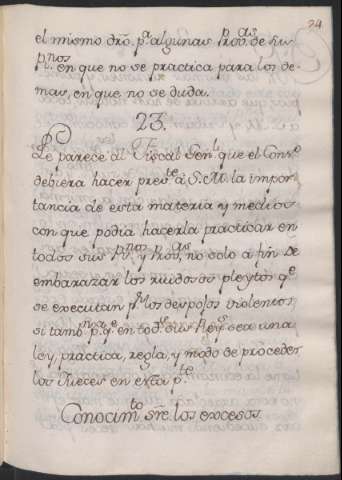 24
el mismo dro. pa. algunas Provas. de sus
Rnos. en que no se practica para los de-
mas, en que no se duda.
23.
Le parece al Fiscal Genl. que el Conso.
debiera hacer preste. a S.M. la impor-
tancia de esta materia y medios
con que podia hacerla practicar en
todos sus Rnos. y Proas. no solo a fin de
embarazar los ruidosos pleytos qe.
se executan pr. los despojos violentos
si tambn. pa. qe. en todos sus Reynos sea una
ley, practica, regla, y modo de proceder
los Jueces en exta. pte.
Conocimto. sre. los excesos.